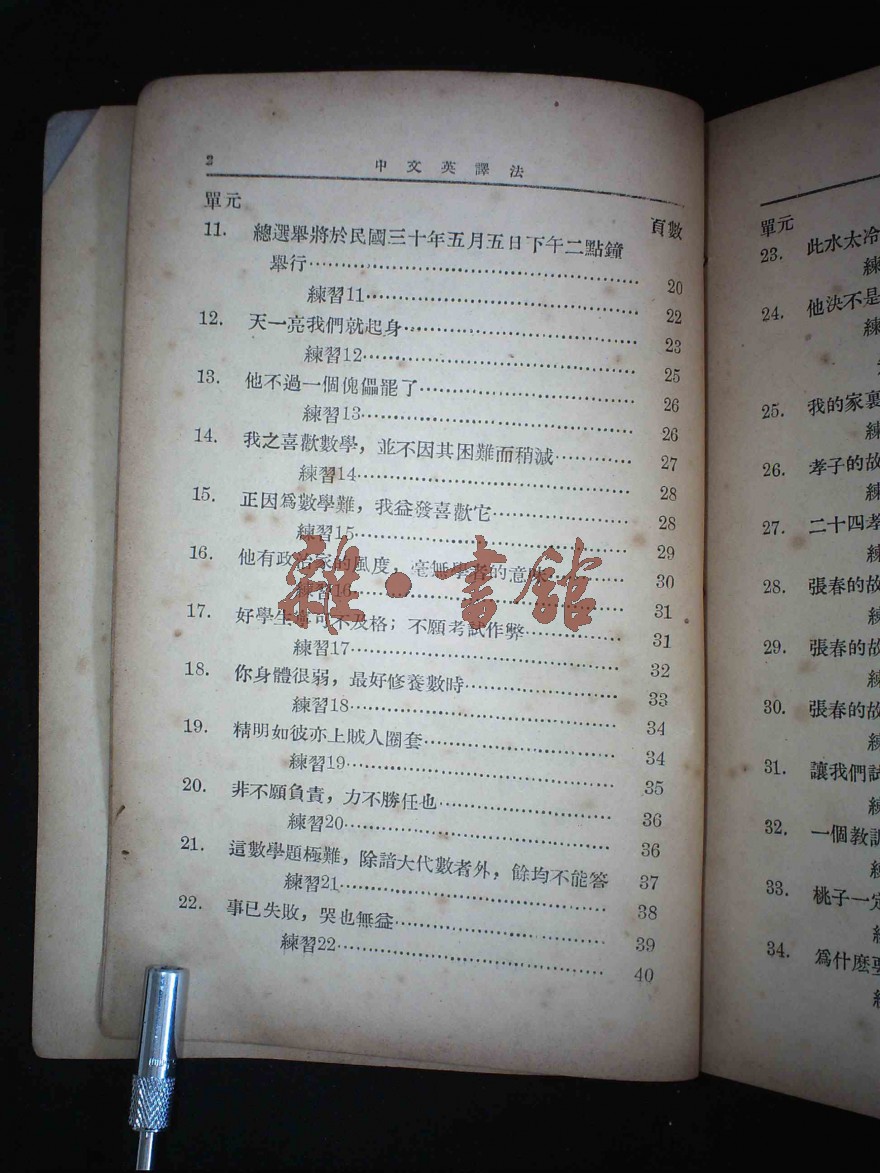 2 中文英譯法
單元 頁數
11. 總選舉將於民國三十年五月五日下午二點鐘
舉行 20
練習11 22
12. 天一亮我們就起身 23
練習12 25
13. 他不過一個傀儡罷了 26
練習13 26
14. 我之喜歡數學，並不因其困難而稍減 27
練習14 28
15. 正因爲數學難，我益發喜歡它 28
練習15 29
16. 他有政治家的風度，毫無學者的意味 30
練習16 31
17. 好學生寧可不及格；不願考試作弊 31
練習17 32
18. 你身體很弱，最好修養數時 33
練習18 34
19. 精明如彼亦上賊人圈套 34
練習19 35
20. 非不願負責，力不勝任也 36
練習20 36
21. 這數學題極難，除諳大代數者外，餘均不能答 37
練習21 38
22. 事已失敗，哭也無益 39
練習22 40
單元
23. 此水太冷
練
24. 他決不是
練
25. 我的家裏
練
26. 孝子的故
練
27. 二十四孝
練
28. 張春的故
練
29. 張春的故
練
30. 張春的故
練
31. 讓我們試
練
32. 一個教訓
練
33. 桃子一定
練
34. 爲什麽要
練
雜·書館